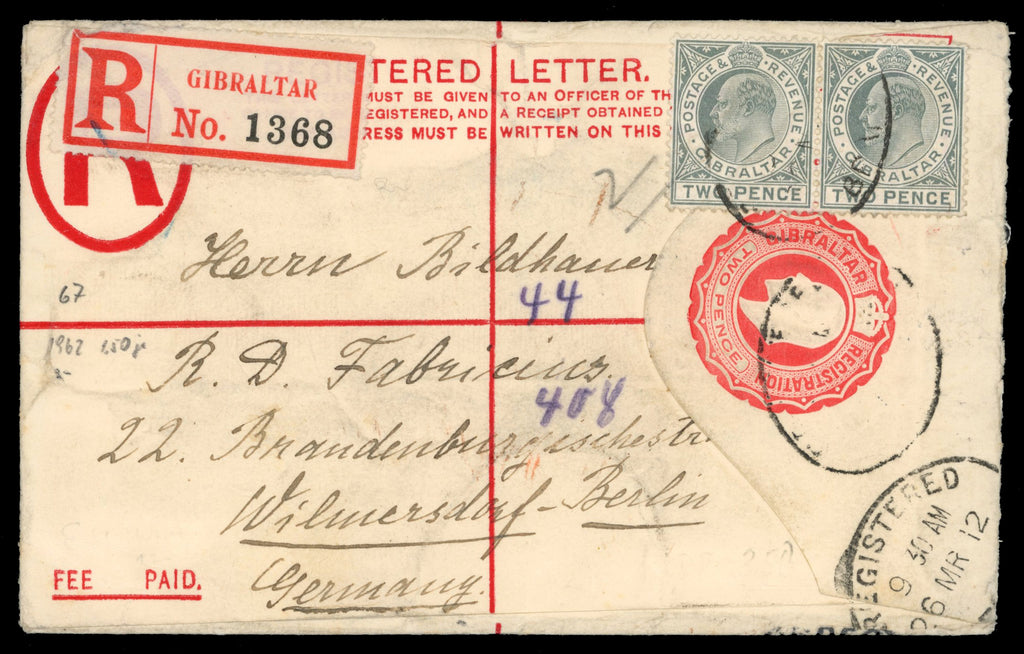 R
GIBRALTAR
No. 1368
TERED LETTER.
MUST BE GIVEN TO AN OFFICER OF TH
EGISTERED, AND A RECEIPT OBTAINED
RESS MUST BE WRITTEN ON THIS
POSTAGE & REVENUE
GIBRALTAR
TWO PENCE
POSTAGE & REVENUE
GIBRALTAR
TWO PENCE
GIBRALTAR
REGISTRATION
TWO PENCE
Herrn Bildhauer
67
44
1962
R. D. Fabricius
408
22. Brandenburgischestr.
Wilmersdorf-Berlin
Germany.
FEE PAID.
REGISTERED
9 30 AM
26 MR 12